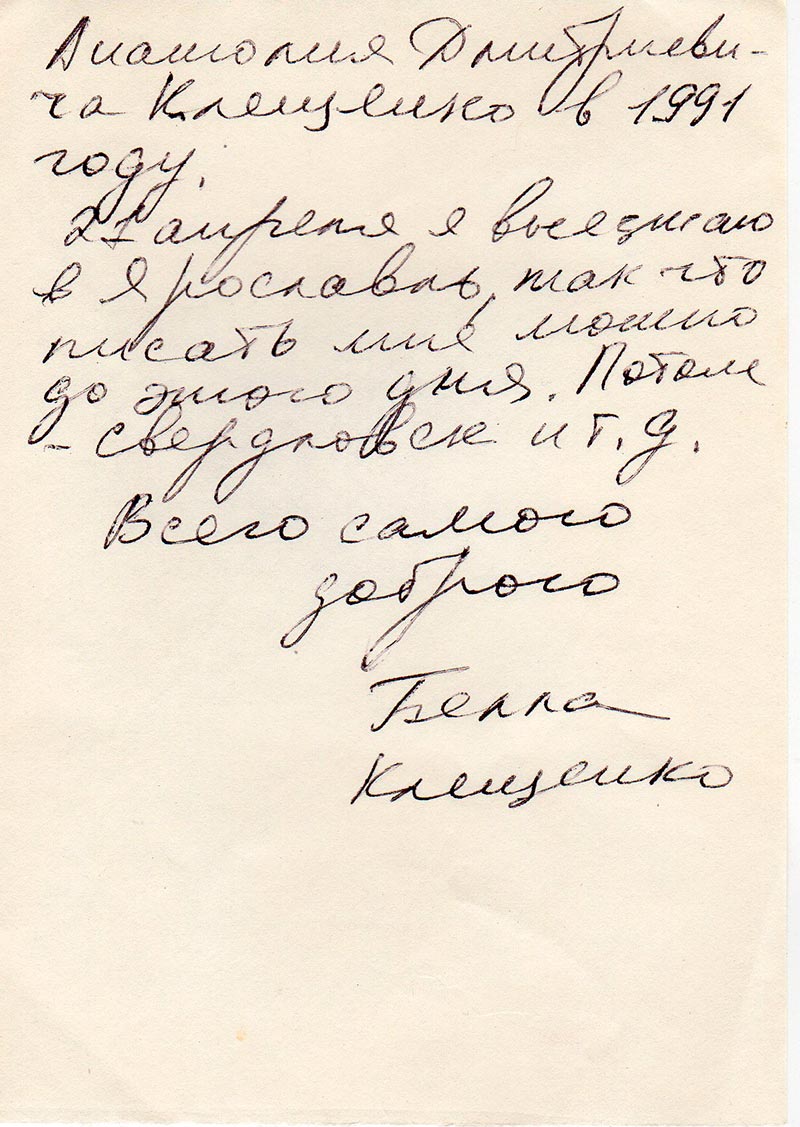 Анатолия Дмитриеви-
ча Клещенко в 1991
году.
21 апреля я выезжаю
в Ярославль, так что
писать мне можно
до этого дня. Потом
- Свердловск и т. д.
Всего самого
доброго
Белла
Клещенко